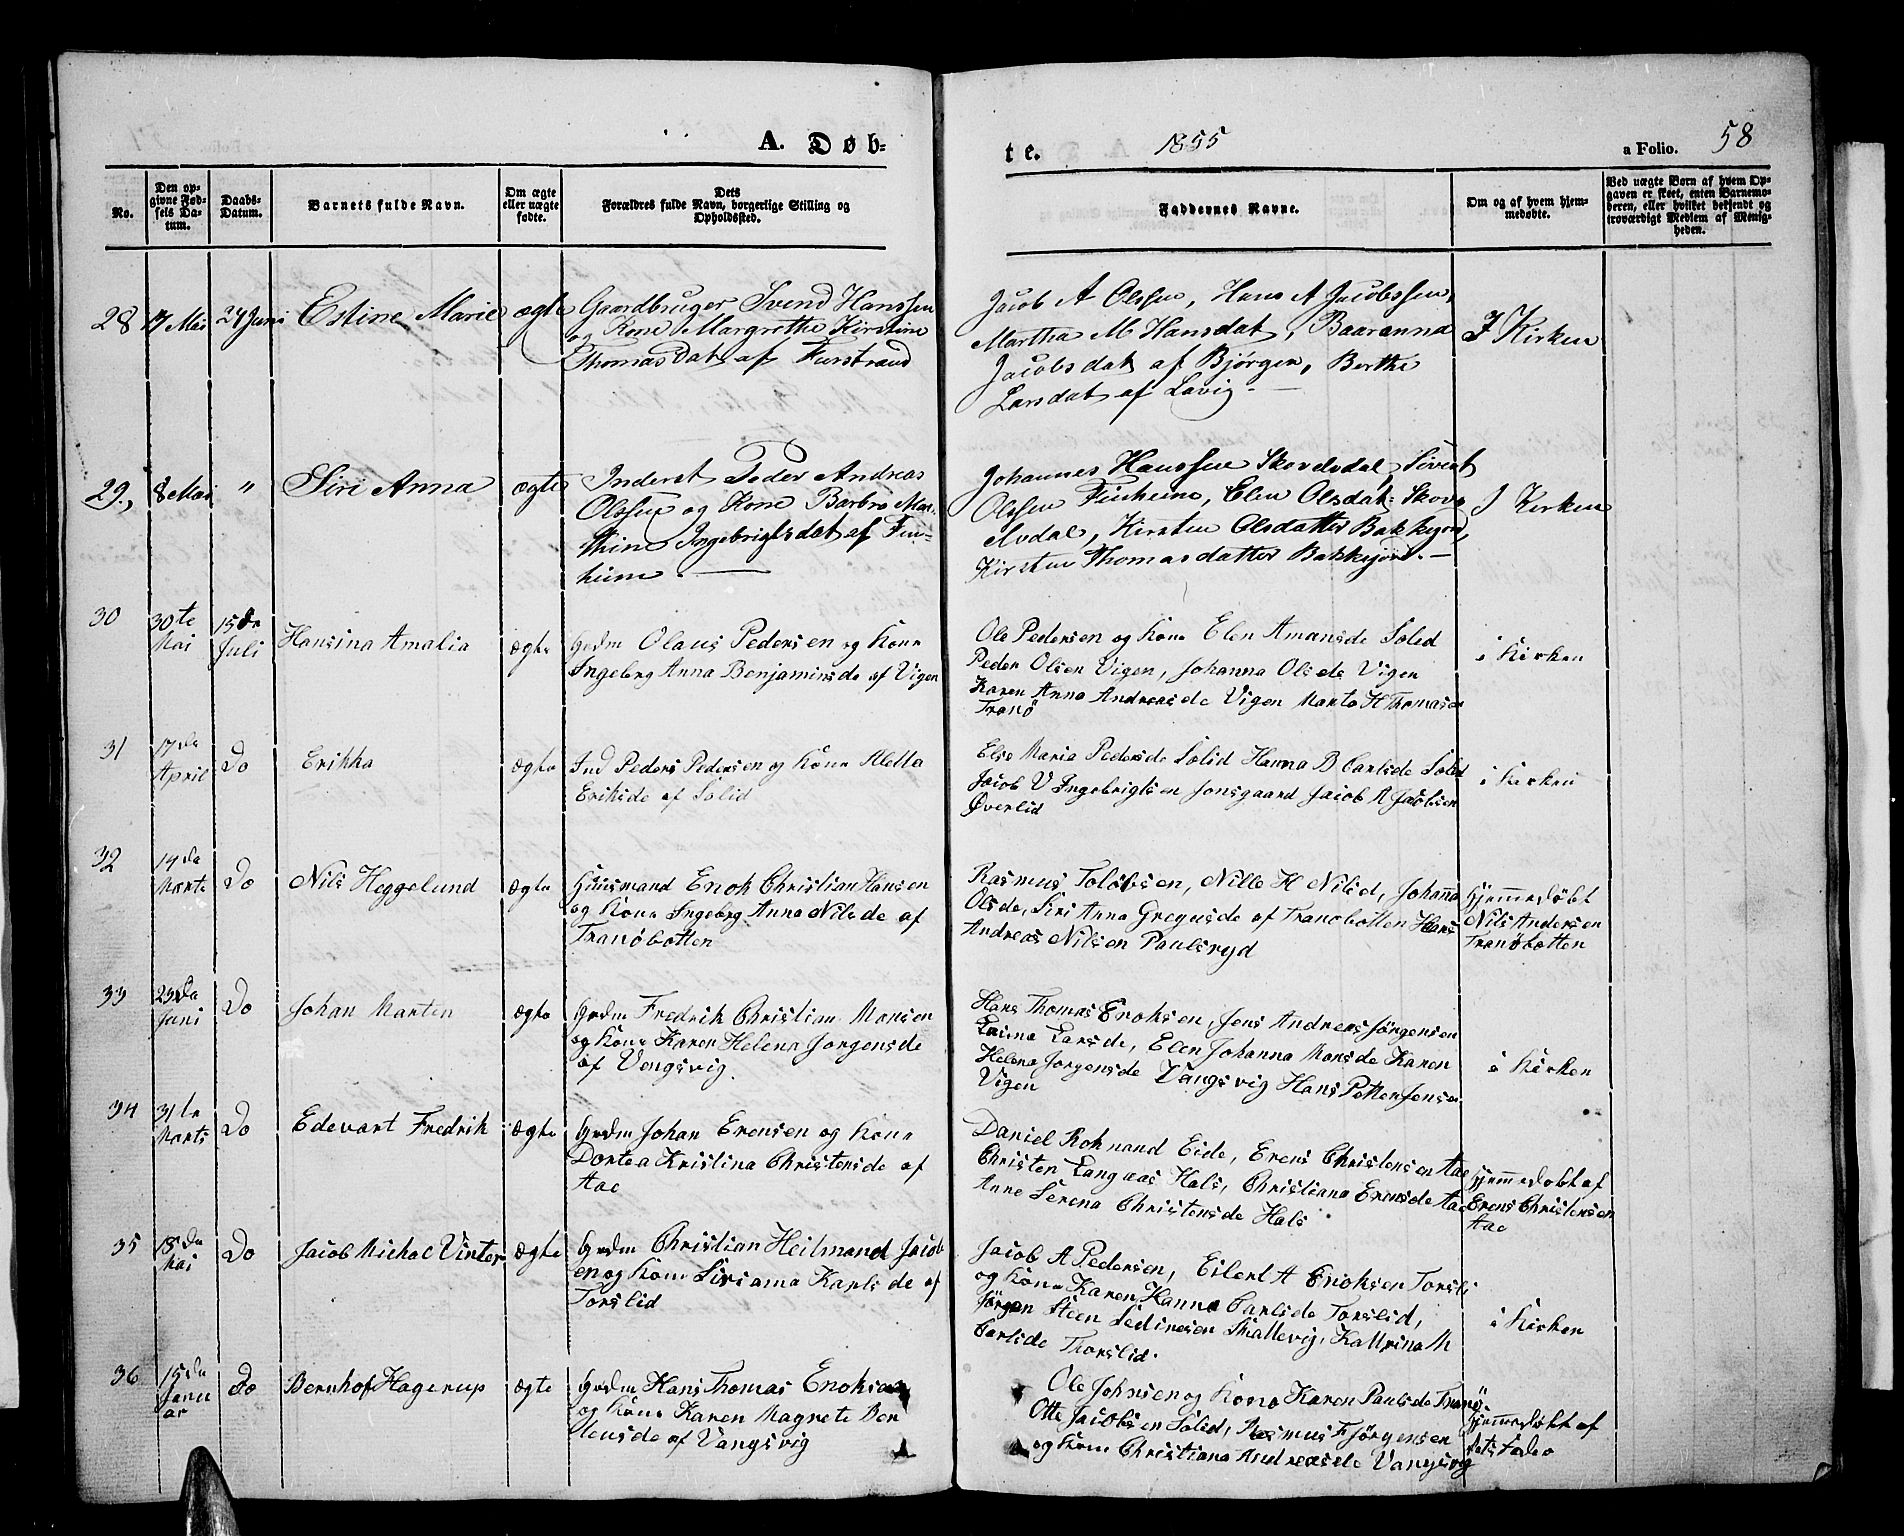 A. Døb-
te.
1855
a Folio.
58
No.
Den op-
givne Fød-
sels Da-
tum.
Daabs-
Datum.
Barnets fulde Navn.
Om ægte
eller uægte
fødte.
Dets
Forældres fulde Navn, borgerlige Stilling og
Opholdsted.
Faddernes Navne.
Om og af hvem hjem-
medøbte.
Ved uægte Børn af hvem Op-
gaven er skeet, enten Barnemo-
deren, eller hvilket bekjendt og
troværdigt Medlem af Menig-
heden.
28
17 Mai
24 Juni
Estine Marie
ægte
Gaardbruger Svend Hanssen
og Kone Margrethe Kirstine
Thomasdat af Furstrand
Jacob A Olssen, Hans A Jacobssen,
Martha M Hansdat, Baaranna
Jacobsdat af Bjørgen, Berthe
Larsdat af Lavig.
I Kirken
29,
8 Mai
"
Siri Anna
ægte
Inderst Peder Andreas
Olssen og Kone Barbro Mar-
thine Ingebrigtsdat af Fin-
heim.
Johannes Hanssen Skovelvdal, Sivert
Olssen Finheim, Elen Olsdat Skov-
elvdal, Kirsten Olsdatter Bakkejord,
Kirsten Thomasdatter Bakkejord.
I Kirken
30
30te
Mai
15de
Juli
Hansina Amalia
ægte
Grdm Olaus Pedersen og Kone
Ingebrg Anna Benjaminsde af Vigen
Ole Pedersen og Kone Elen Amansde Solid
Peder Olsen Vigen, Johanna Olsde Vigen
Karen Anna Andreasde Vigen Marta H Thomasen
Tranø
i Kirken
31
17de
April
Do
Erikka
ægte
Ind Peders Pedersen og Kone Aletta
Eriksde af Solid
Else Maria Pedersde Solid Hanna B Carlsde Solid
Jacob U Ingebrigtsen Jonsgaard Jacob A Jacobsen
Øverlid
i Kirken
32
14de
Marts
Do
Nils Heggelund
ægte
Huusmand Enok Christian Hansen
og Kone Ingebrg Anna Nilsde af
Tranøbotten
Rasmus Tolobsen, Nille H Nilsd, Johanna
Olsde, Siri Anna Gregusde af Tranobotten Hans
Andreas Nilsen Paulsryd
Hjemmedøbt
Nils Andersen
Tranøbotten
33
23de
Juni
Do
Johan Marten
ægte
Grdm Fredrik Christian Monsen
og Kone Karen Helena Jorgensde
af Vangsvig
Hans Thomas Enoksen, Jens Andreas Jørgensen
Larsde, Elen Johanna Monsde Karen
Helena Jorgensde Vangsvig Hans Petter Jensen
Vigen
i Kirken
34
31te
Marts
Do
Edevart Fredrik
ægte
Grdm Johan Erensen og Kone
Dortea Kristina Christensde af
Aae
Daniel Roknand Eide, Erens Christensen Aae
Christen Langaas Hals, Christiana Erensde Aae
Anne Serena Christensde Hals
Hjemmedøbt af
Erens Christensen
Aae
35
18de
Mai
Do
Jacob Michac Vinter
ægte
Grdm Christian Heilmand Jacob
en og Kone Siriama Karlsde af
Torslid
Jacob A Pedersen, Eilert A Enoksen Torsli
og Kone Karen Hanna Carlsde Torslid,
Jørgen Steen Sedinesen Skallevig, Katrina M
Carlsde Thorslid.
i Kirken
36
15de
Janu
ar
Do
Bernhof Hagerup
ægte
Grdm Hans Thomas Enoksen
og Kone Karen Magrete Ber
ntensde af Vangsvig
Ole Johnsen og Kona Karen Paulsde Tranø
Otte Jacobsen Solid, Rasmus F Jørgensen
og Kone Christiana Andreasde Vangsvig
Hjemmedøbt af
dets Fader